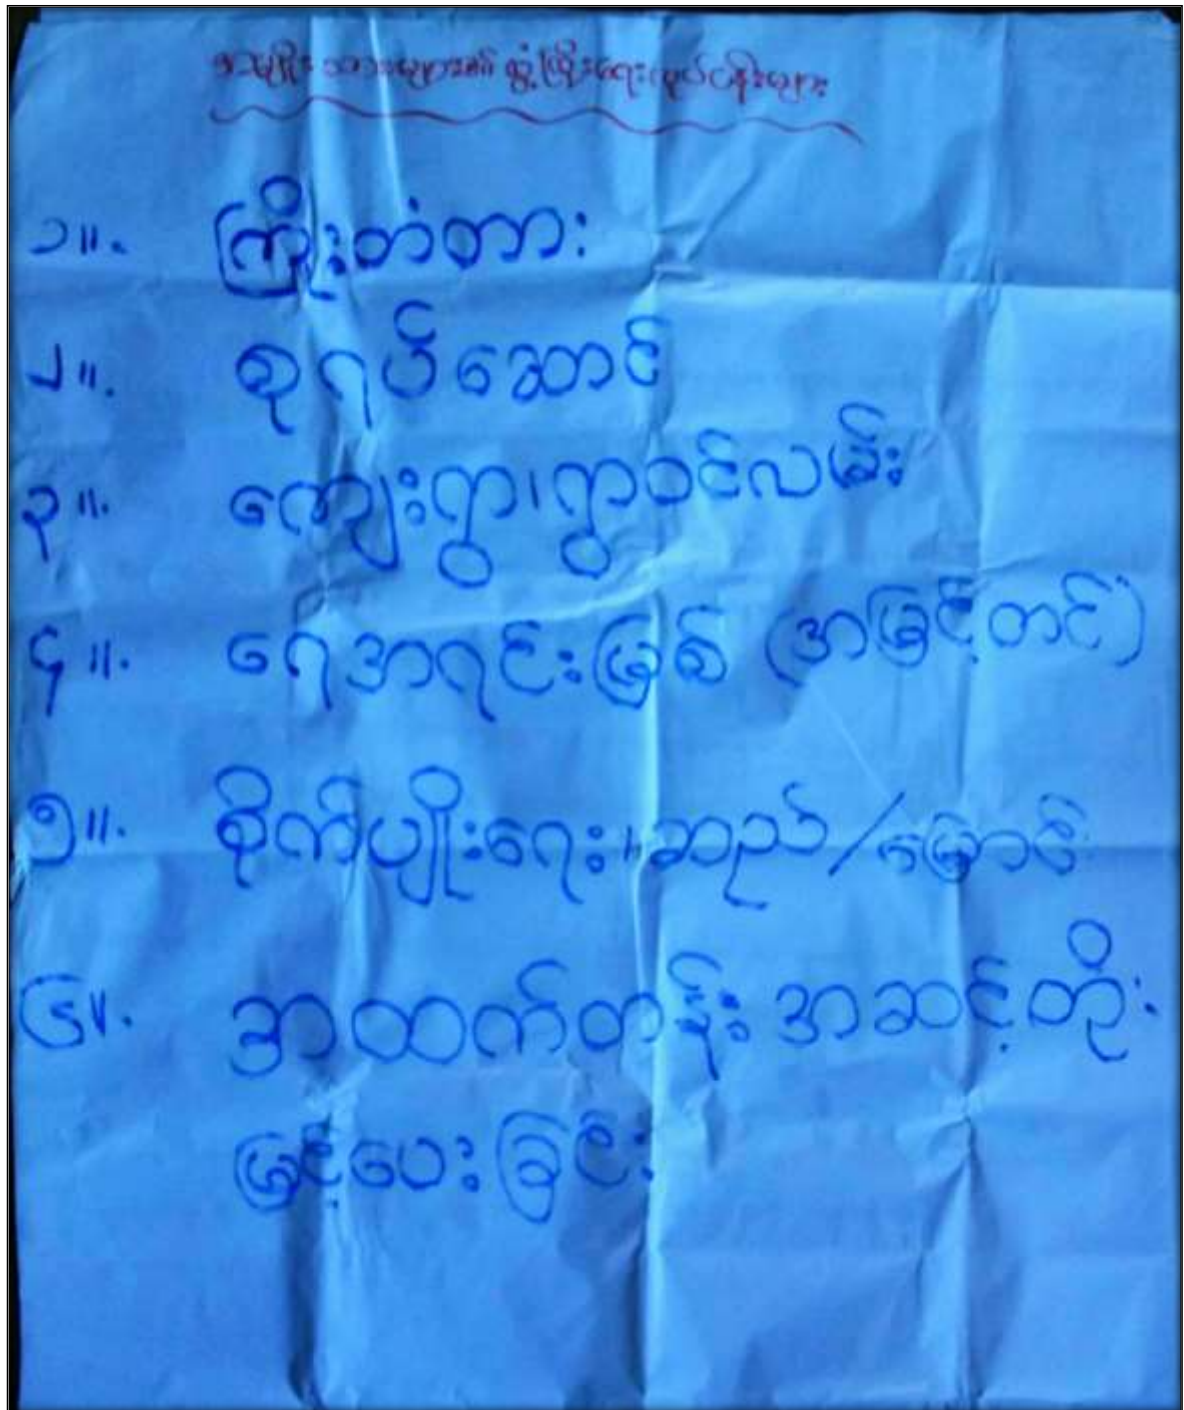 အမျိုးသားများ၏ ဖွံ့ဖြိုးရေးလုပ်ငန်းများ
၁။. ကြိုးတံတား
၂။. စုရပ်ဆောင်
၃။. ကျေးရွာ၊ရွာဝင်လမ်း
၄။. ရေအရင်းမြစ် (အမြင့်တင်)
၅။. စိုက်ပျိုးရေး၊ဆည်/မြောင်
၆။. အထက်တန်း အဆင့်တိုး
မြင့်ပေးခြင်း